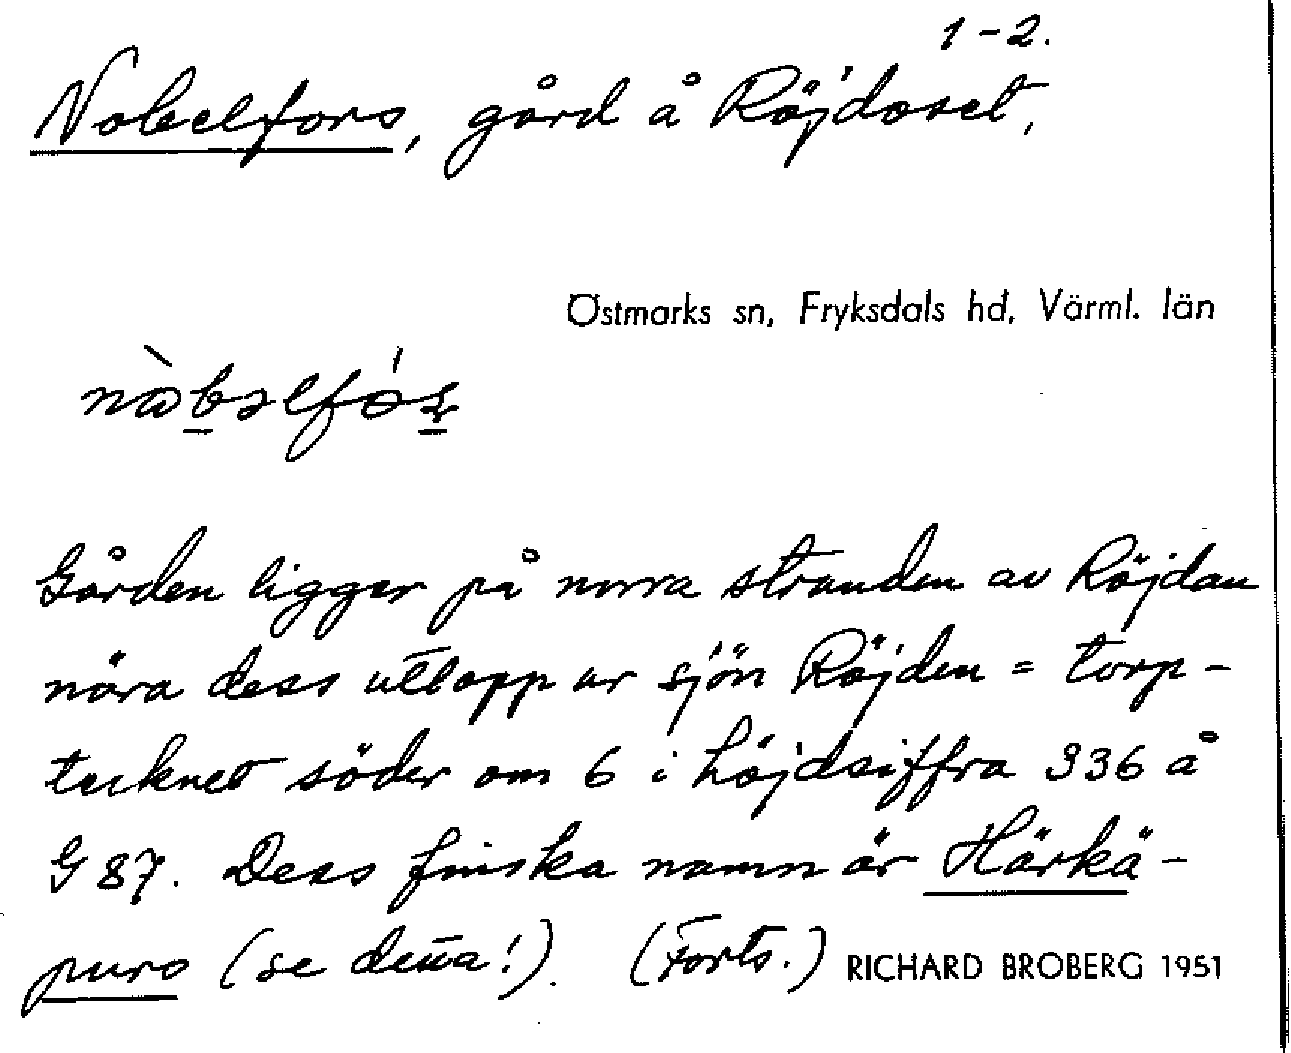 1-2.
Nobelfors, gård å Röjdåset,
Östmarks sn, Fryksdals hd, Värml. län
Gården ligger på norra stranden av Röjdan
nära dess utlopp ur sjön Röjden = torp-
tecknet söder om 6 i höjdsiffra 336 å
G 87. Dess finska namn är Härkä-
puro (se denna!). (Forts.) RICHARD BROBERG 1951